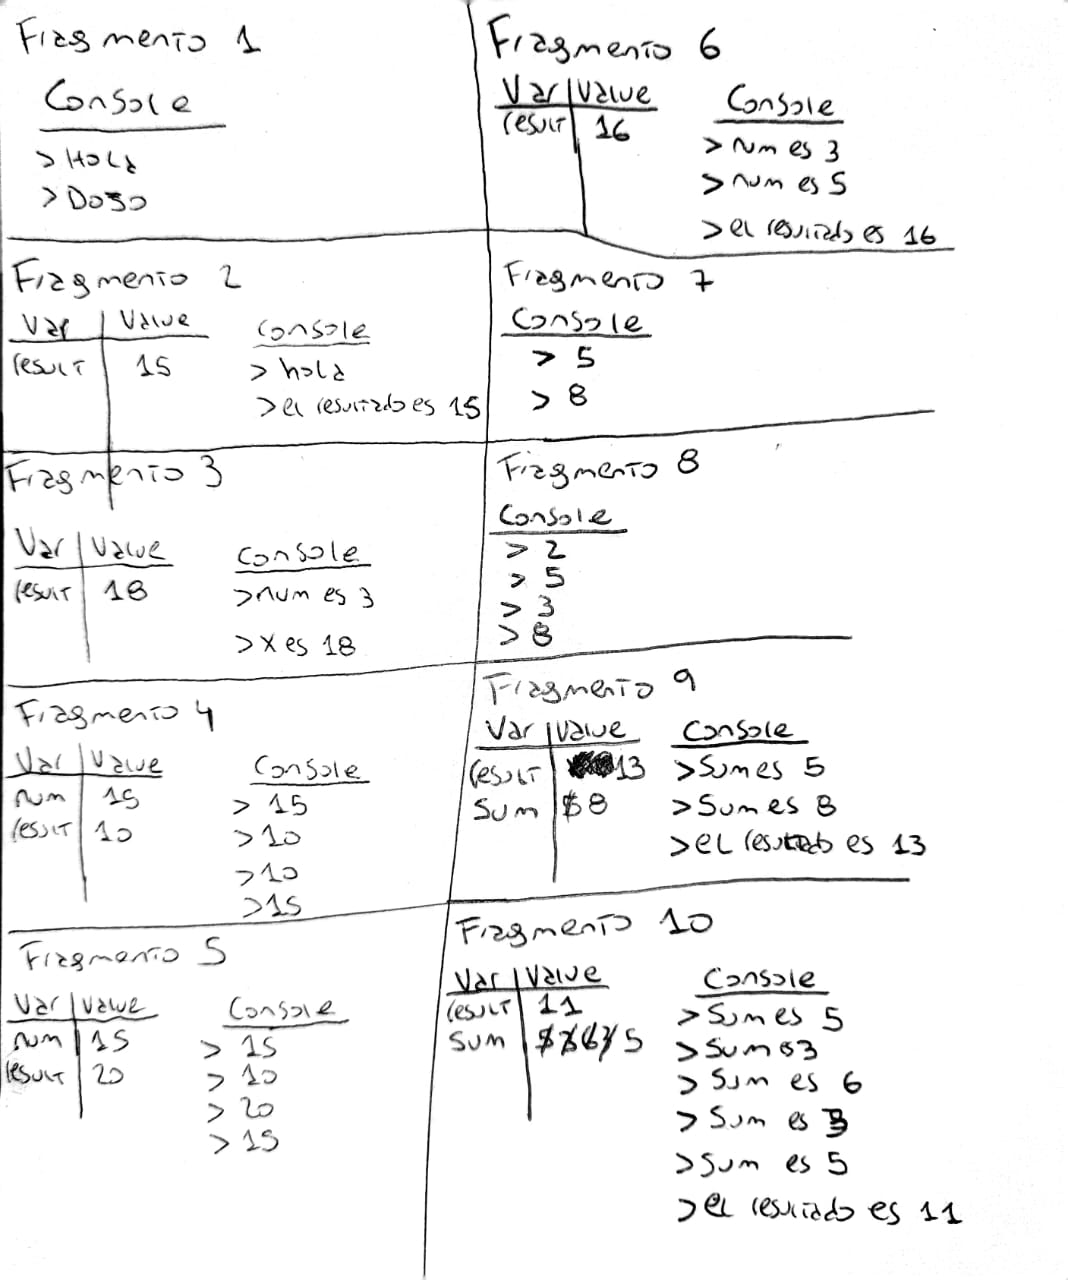 Fragmento 1
Console
> Hola
> Dogo
Fragmento 2
Var | Value
result | 15
Console
> hola
> el resultado es 15
Fragmento 3
Var | Value
result | 18
Console
> num es 3
> x es 18
Fragmento 4
Var | Value
num | 15
result | 10
Console
> 15
> 10
> 10
> 15
Fragmento 5
Var | Value
num | 15
result | 20
Console
> 15
> 10
> 20
> 15
Fragmento 6
Var | Value
result | 16
Console
> num es 3
> num es 5
> el resultado es 16
Fragmento 7
Console
> 5
> 8
Fragmento 8
Console
> 2
> 5
> 3
> 8
Fragmento 9
Var | Value
result | 13
Sum | 5 8
Console
> Sum es 5
> Sum es 8
> el resultado es 13
Fragmento 10
Var | Value
result | 11
Sum | 5
Console
> Sum es 5
> Sum es 3
> Sum es 6
> Sum es 3
> Sum es 5
> el resultado es 11